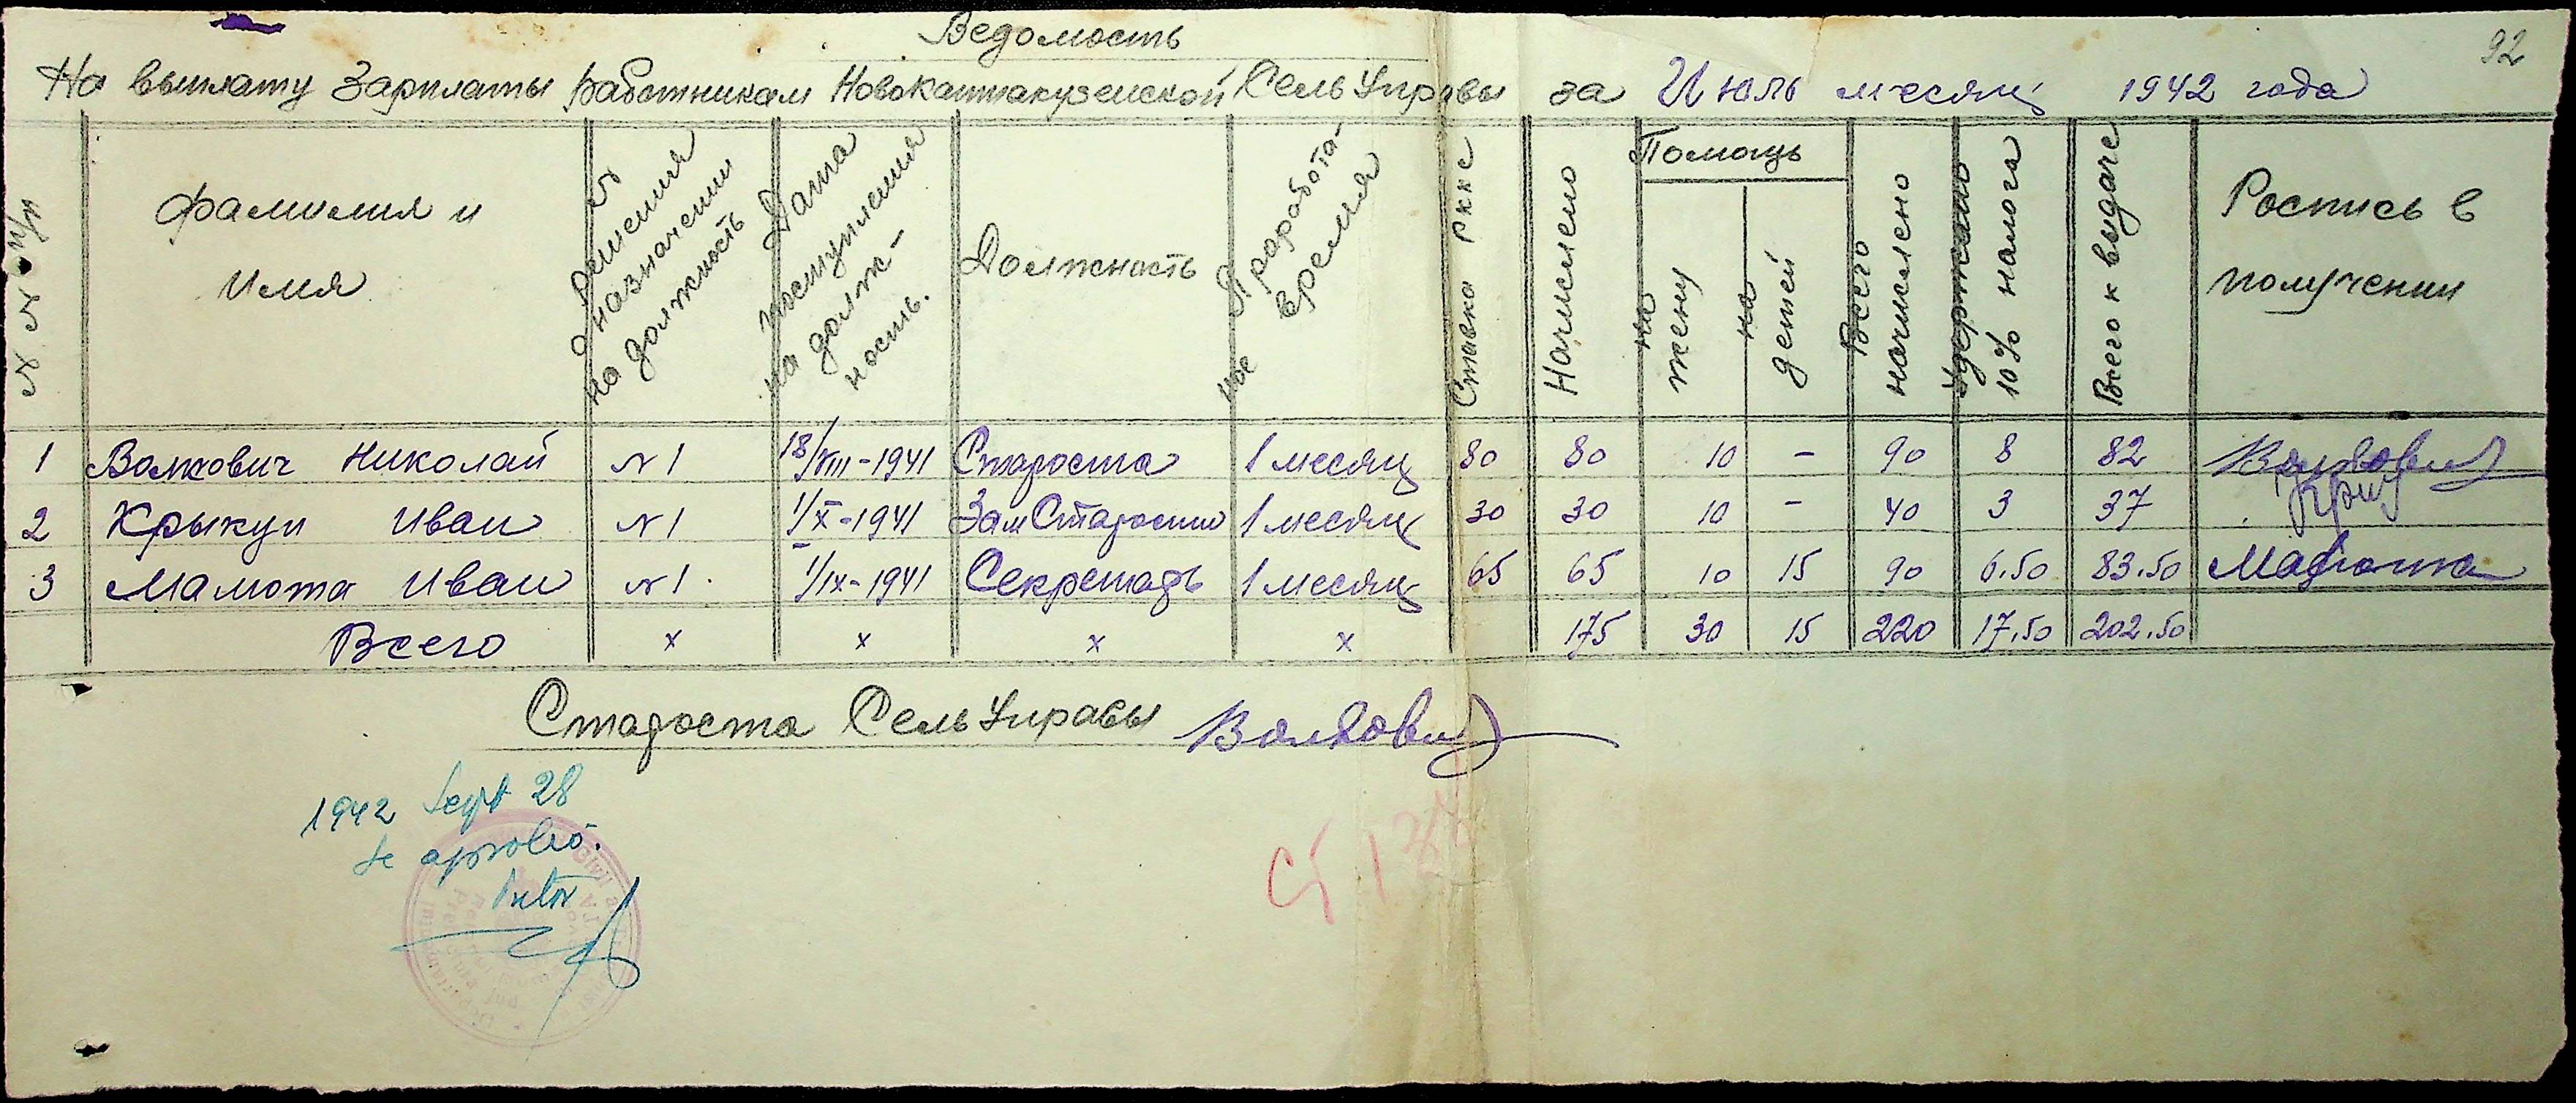 92
Ведомость
На выплату Зарплаты работникам Новокантакузенской Сель Управы за Июль месяц 1942 года
№ № п/п
Фамилия и
Имя
№
решения
о назначении
на должность
Дата
поступления
на долж-
ность.
Должность
Проработа-
ное
время
Ставка
РККС
Начислено
Помощь
на
жену
на
детей
Всего
начислено
Удержано
10% налога
Всего к выдаче
Роспись в
получении
1 Волкович Николай №1 18/VIII-1941 Староста 1 месяц 80 80 10 - 90 8 82 Волкович
2 Крыкун Иван №1 1/X-1941 Зам Старосты 1 месяц 30 30 10 - 40 3 37
3 Мамота Иван №1. 1/IX-1941 Секретарь 1 месяц 65 65 10 15 90 6.50 83.50 Мамота
Всего х х х х 175 30 15 220 17.50 202.50
Староста Сель Управы Волкович
1942 Sept 28
se aprobă.